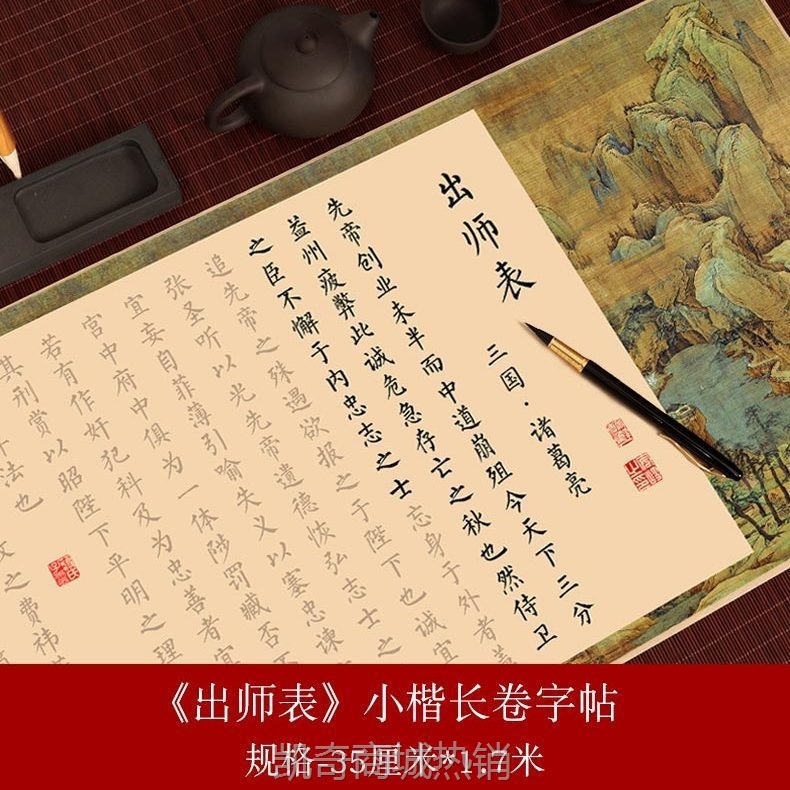 出师表
三国·诸葛亮
先帝创业未半而中道崩殂今天下三分
益州疲弊此诚危急存亡之秋也然侍卫
之臣不懈于内忠志之士忘身于外者盖
追先帝之殊遇欲报之于陛下也诚宜
张圣听以光先帝遗德恢弘志士之
宜妄自菲薄引喻失义以塞忠谏
宫中府中俱为一体陟罚臧否
若有作奸犯科及为忠善者宜
其刑赏以昭陛下平明之理
法也
之费祎
《出师表》小楷长卷字帖
规格-35厘米*1.7米
凯奇商城热销